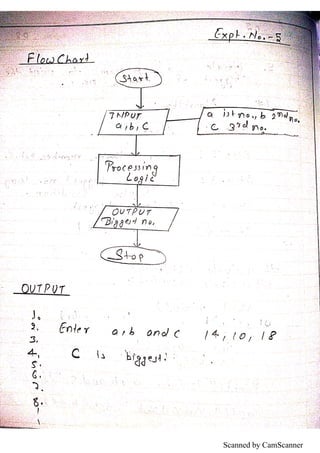 Expt. No.-5
Flow Chart
Start
INPUT
a,b,c
a 1st no., b 2nd no.
c 3rd no.
Processing
Logic
OUTPUT
Biggest no.
Stop
OUTPUT
1.
2. Enter a,b and c 14, 10, 18
3.
4. C is biggest.
5.
6.
7.
8.
Scanned by CamScanner